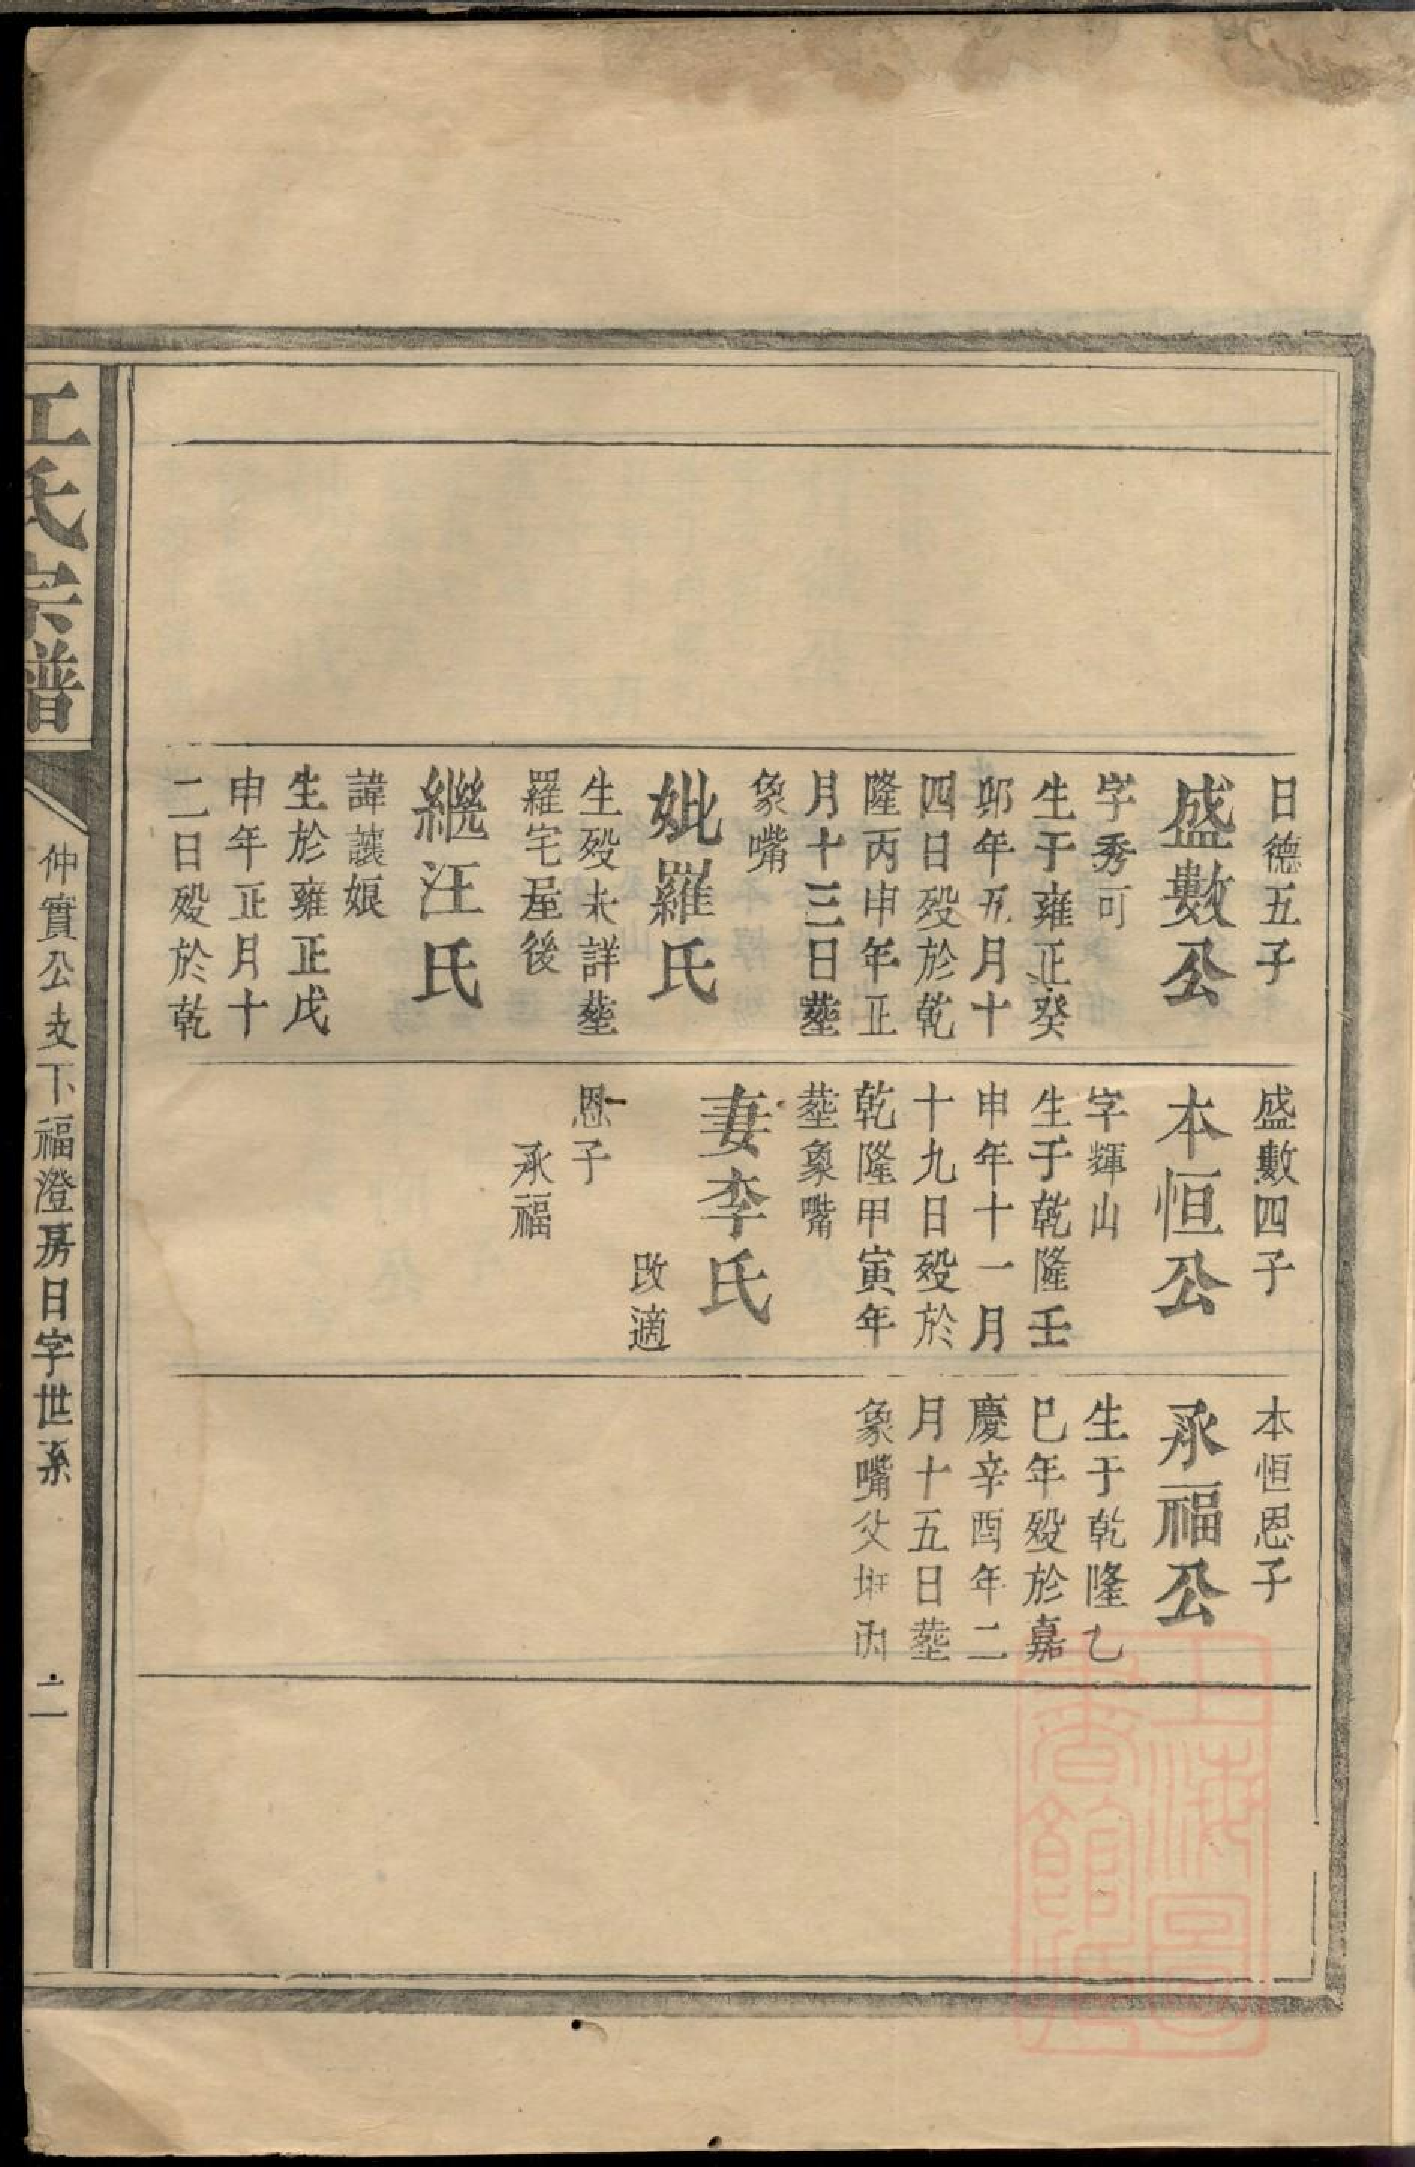 日德五子
盛數公
字秀可
生于雍正癸
卯年五月十
四日殁於乾
隆丙申年正
月十三日塟
象嘴
妣羅氏
生殁未詳塟
羅宅屋後
繼汪氏
諱讓娘
生於雍正戊
申年正月十
二日殁於乾
盛數四子
本恒公
字輝山
生于乾隆壬
申年十一月
十九日殁於
乾隆甲寅年
塟象嘴
妻李氏
改適
恩一子
承福
本恒恩子
承福公
生于乾隆乙
巳年殁於嘉
慶辛酉年二
月十五日塟
象嘴父坵內
江氏宗譜
仲實公支下福澄房日字世系
二
上海圖
書館藏